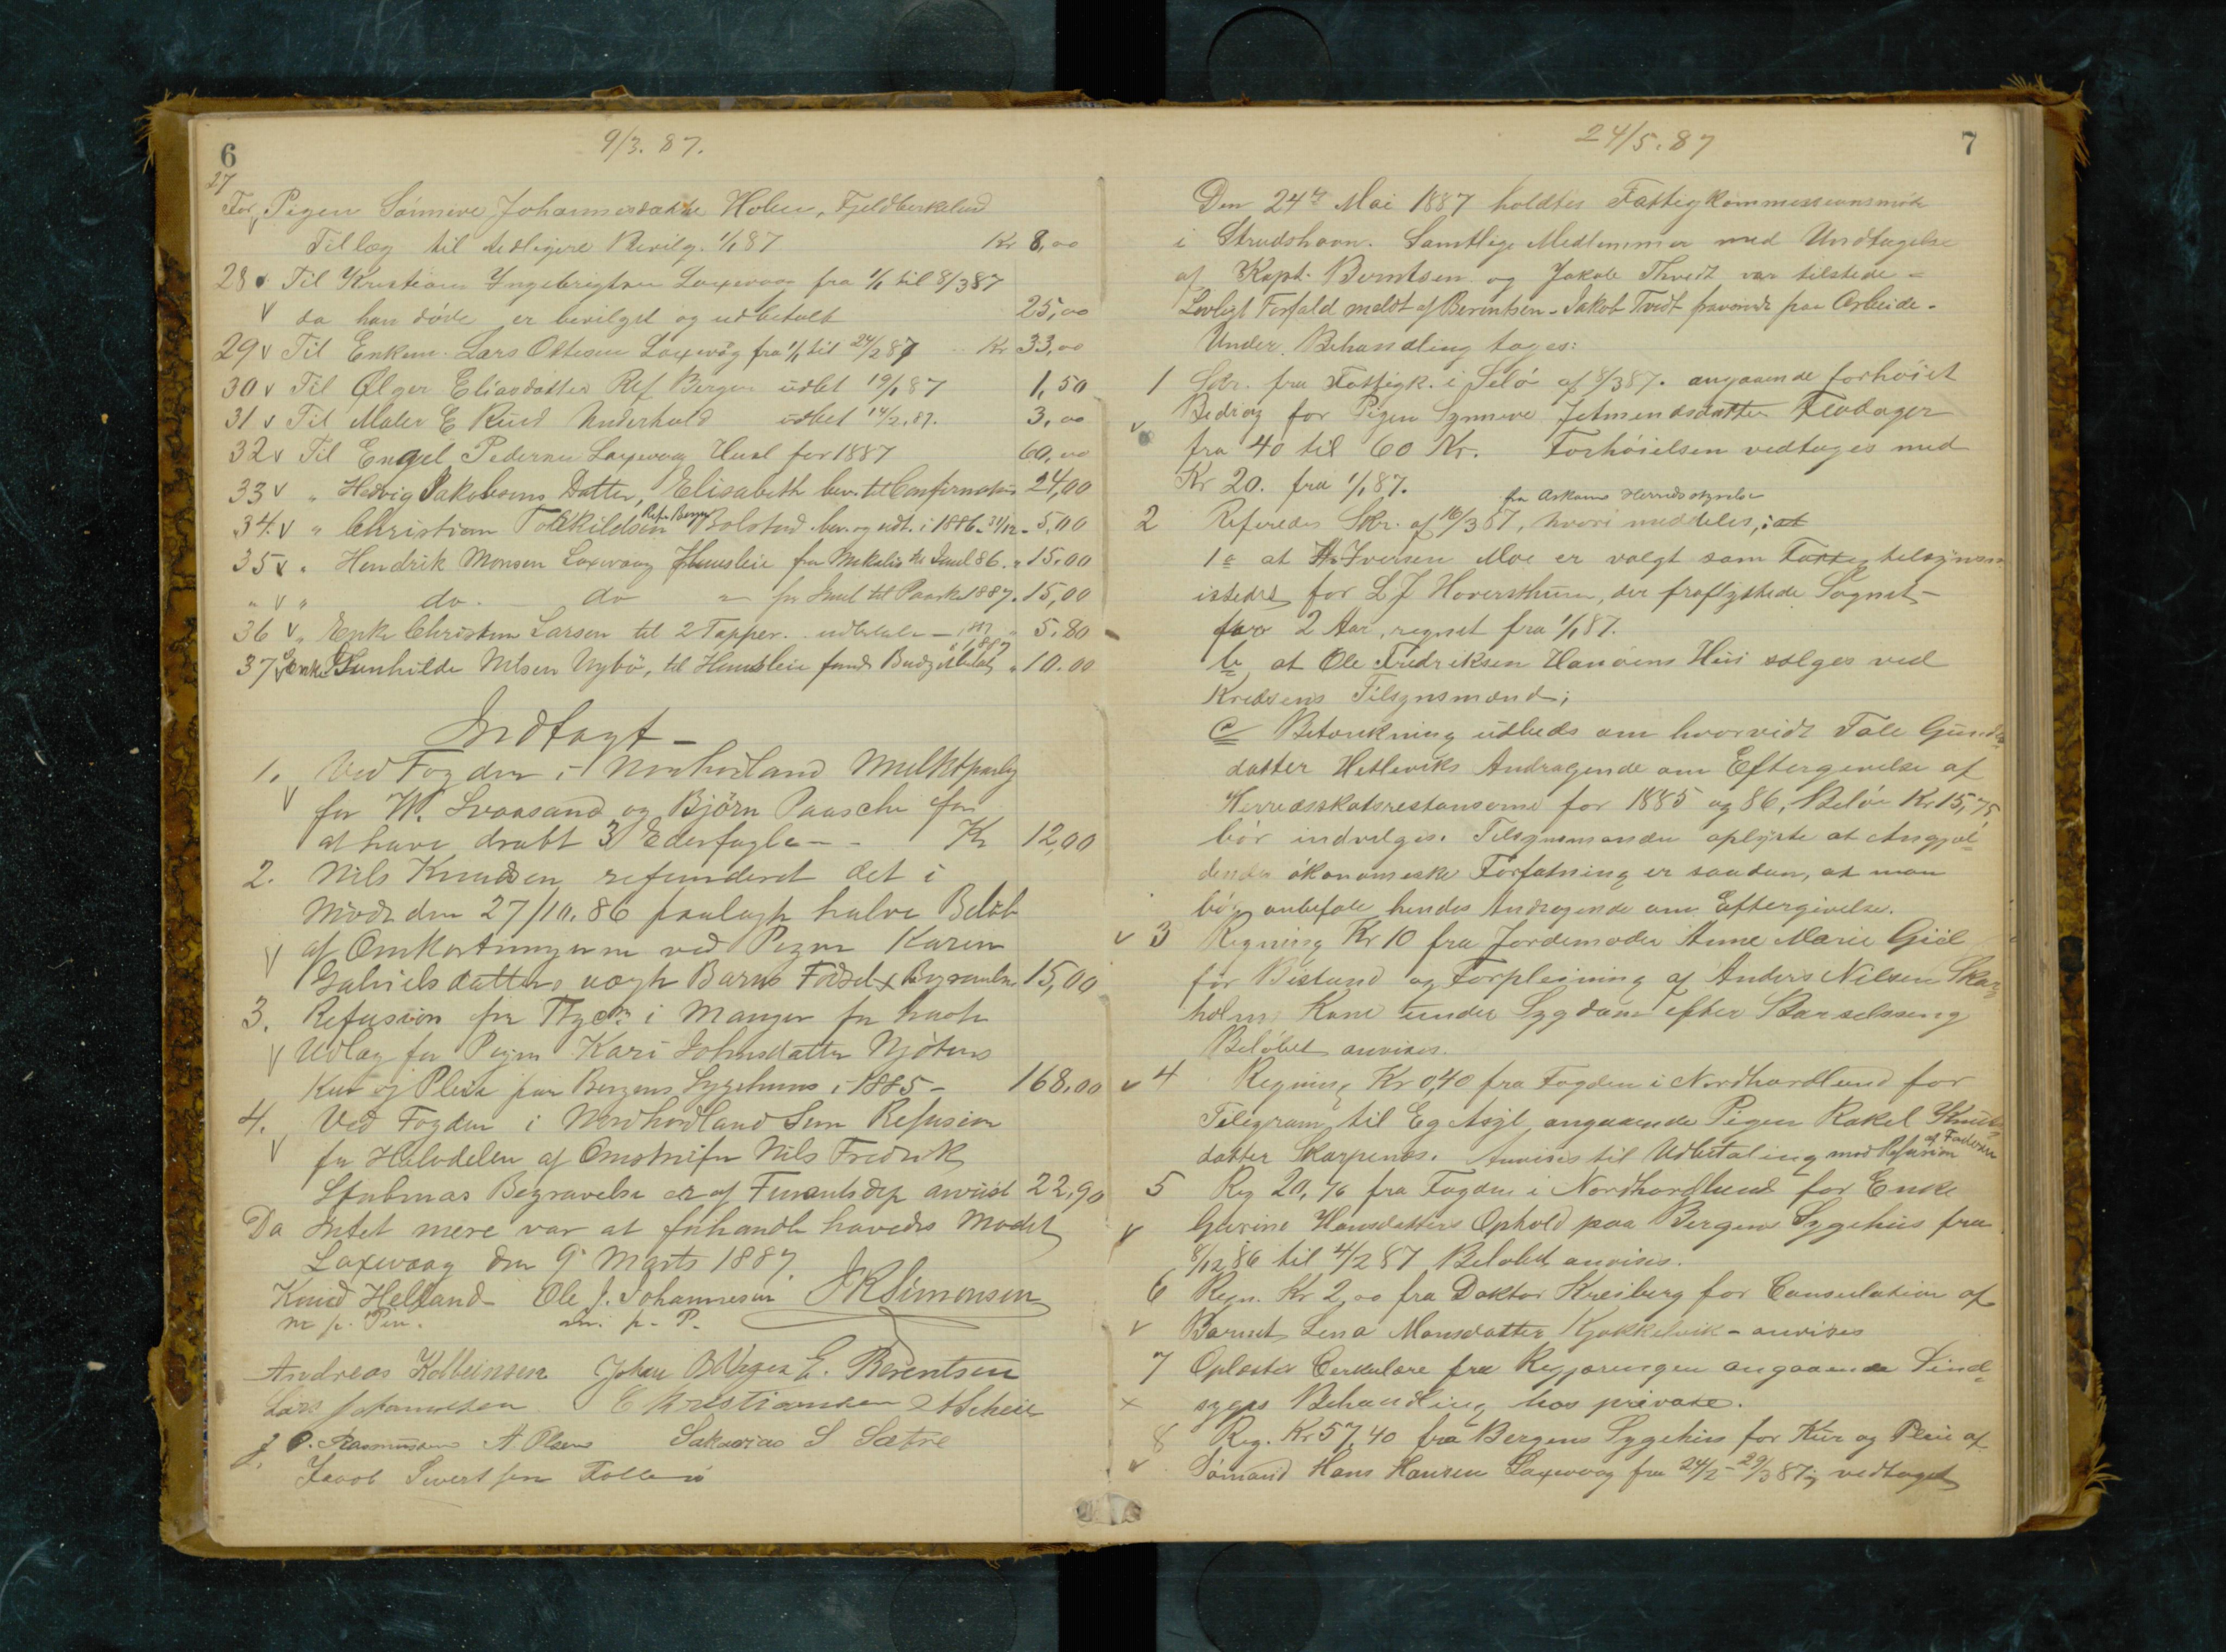 6
9/3. 87.
27
For Pigen Sønneve Johannesdatter Holen, Fjeldbirkeland
Tillæg til tidligere Bevilg. 1/1 87 Kr 8,00
28 v Til Kristian Ingebrigtsen Laxevaag fra 1/1 til 8/3 87
v da han døde er bevilget og udbetalt 25,00
29 v Til Enkem. Lars Ottesen Laxevåg fra 1/1 til 24/2 87 Kr 33,00
30 v Til Ølger Eliasdatter Ref Bergen udbet 19/1 87 1,50
31 v Til Maler E Ruud Underhold udbet 14/2. 87. 3,00
32 v Til Engel Pedersen Laxevaag Husl for 1887 60,00
33 v " Hedvig Jakobsens Datter, Elisabeth bev. til Confirmation 24,00
Ref. Bergen
34. v " Christian Tolkildsen Bolstad bev. og udt. i 1886 31/12 - 5,00
35 v " Hendrik Monsen Laxevaag Huusleie fra Mikelis til Juul 86. " 15.00
" v " do. do - fra Juul til Paaske 1887. 15,00
36 v " Enke Christine Larsen til 2 Tapper. udbetale - 1887 " 5.80
37 v Enke Gunhilde Nilsen Nybø, til Huusleie 10.00
Indtægt -
1. Ved Fogden i Nordhordland Mulktpenge
v for W. Svaasand og Bjørn Paasche for
at have dræbt 3 Ederfugle - - Kr 12,00
2. Nils Knudsen refunderet det i
Møde den 27/10. 86 paalagte halve Beløb
v af Omkostningerne ved Pigen Karen
Gabrielsdatters uægte Barns Fødsel & Begravelse 15,00
3. Refusion fra Ftgcn i Manger for havte
v Udlæg for Pigen Kari Johnsdatter Njøtens
Kur og Pleie paa Bergens Sygehuus i 1885 - 168,00
4. Ved Fogden i Nordhordland Sum Refusion
v for Halvdelen af Omstreifer Nils Fredrik
Begravelse er af anvist 22,90
Da Intet mere var at forhandle hævedes Mødet
Laxevaag den 9de Marts 1887.
Knud Helland Ole J. Johannesen J R Simonsen
m p. Pen. m. p. P.
Andreas Kolbeinsen Johan E. Berentsen
Lars Johannesen E Kristiansen
J. P. Rasmussen A. Olsen Sakarias S Sætre
Jacob Sivertsen

24/5. 87
7
Den 24de Mai 1887 holdtes Fattigkommissionsmøde
i Strudshavn. Samtlige Medlemmer med Undtagelse
af Kapt. Berntsen og Jakob Thveit var tilstede -
Lovligt Forfald meldt af Berentsen - Jakob Tveit fraværende paa Arbeide -
Under Behandling toges:
1 Skr. fra Fattigk. i Selø af 8/3 87. angaaende forhøiet
v Bidrag for Pigen Synneve Jetmundsdatter Flodager
fra 40 til 60 Kr. Forhøielsen vedtoges med
Kr 20. fra 1/1 87.
fra Askøens Herredsstyrelse
2 Referedes Skr. af 16/3 87, hvori meddeles, : at
1 a at Hr Iversen Moe er valgt som Fattig tilsynsm
istedet for L J Hoversthun, der fraflyttede Sognet -
for 2 Aar, regnet fra 1/1 87.
b, at Ole Fredriksen Hanøens Hus sælges ved
Kredsens Tilsynsmænd;
c Betænkning udbeds om hvorvidt Tale Gunds-
datter Hetleviks Andragende om Eftergivelse af
Herredsskatsrestanserne for 1885 og 86, Beløb Kr 15,75,
bør indvilges. Tilsynsmanden oplyste at Angjæl-
dendes økonomiske Forfatning er saadan, at man
bør anbefale hendes Andragende om Eftergivelse.
v 3 Regning Kr 10 fra Jordemoder Anne Marie Giil
for Bistand og Forpleining af Anders Nilsen Skar-
holms Kone under Sygdom efter Barselsseng
Beløbet anvises.
v 4 Regning Kr 0,40 fra Fogden i Nordhordland for
Telegram til Eg Asyl angaaende Pigen Rakel Knuds-
datter Skarpenes. Anvises til Udbetaling mod Refusion af Faderen
5 Reg 20,76 fra Fogden i Nordhordland for Enke
v Gurine Hansdatters Ophold paa Bergens Sygehus fra
8/12 86 til 4/2 87 Beløbet anvises.
6 Regn. Kr 2,00 fra Doktor Kreiberg for Consulation af
v Barnet Lena Monsdatter Kjøkkelvik - anvises
7 Oplæstes Cerkulære fra Regjeringen angaaende Sind-
x syges Behandling hos private.
8 Reg. Kr 57,40 fra Bergens Sygehus for Kur og Pleie af
v Sømand Hans Hansen Laxevaag fra 24/2 - 29/3 87, vedtaget